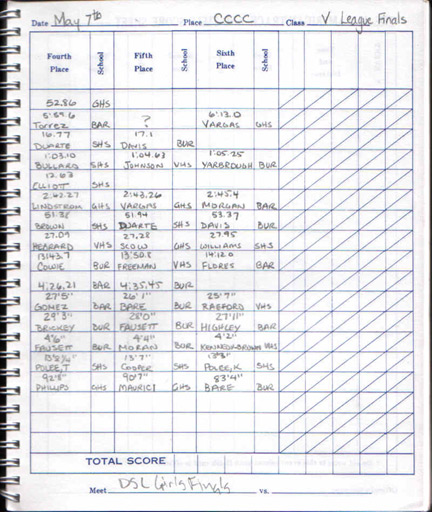 Date May 7th Place CCCC Class V League Finals
Fourth Place School Fifth Place School Sixth Place School
52.86 GHS
5:59.6 ? 6:13.0
Torrez BAR VARGAS GHS
16.77 17.1
DUARTE SHS DAVIS BUR
1:03.10 1:04.63 1:05.25
BULLARD SHS JOHNSON VHS YARBROUGH BUR
12.63
ELLIOT SHS
2:42.27 2:43.26 2:45.4
LINDSTROM GHS VARGAS GHS MORGAN BAR
51.38 51.94 53.37
BROWN SHS DUARTE SHS DAVIS BUR
27.09 27.28 27.95
HEBRARD VHS SCOW GHS WILLIAMS SHS
13:43.7 13:50.8 14:12.0
COWIE BUR FREEMAN VHS FLORES BAR
4:26.21 BAR 4:35.45 BUR
27'5" 26'1" 25'7"
GOMEZ BAR BARE BUR RAEFORD VHS
29'3" 28'0" 27'11"
BRICKEY BUR FAUSETT BUR HIGHLEY BAR
4'6" 4'4" 4'2"
FAUSETT BUR MORAN BUR KENNERBROWN VHS
13'7" 13'3"
POLEE,T SHS COOPER SHS POLEE,K SHS
92'8" 90'7" 83'4"
PHILLIPS GHS MAURICI GHS BARE BUR
TOTAL SCORE
Meet DSL Girls Finals vs.